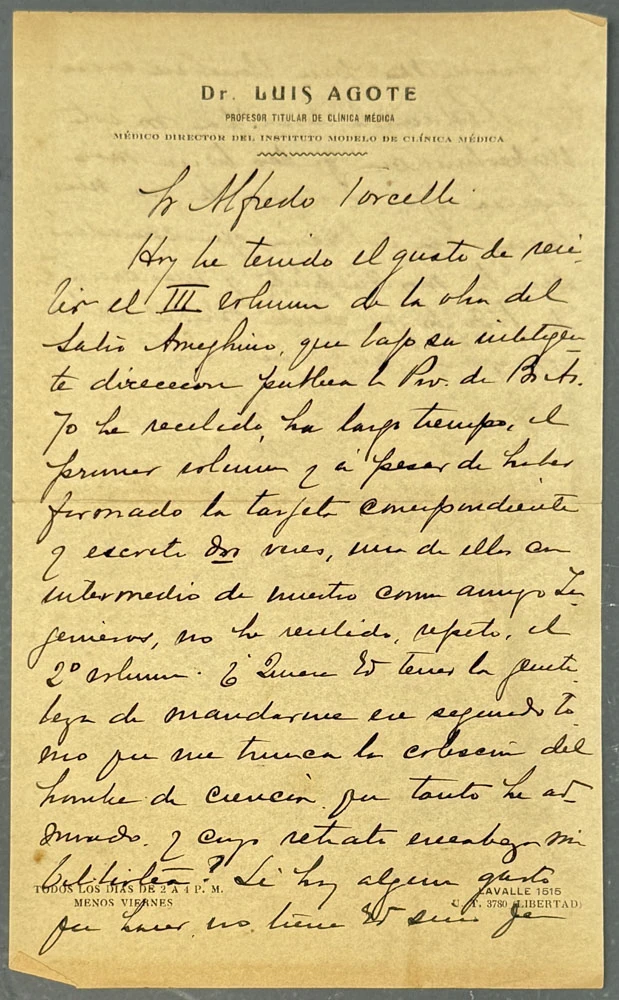 Dr. LUIS AGOTE
PROFESOR TITULAR DE CLÍNICA MÉDICA
MÉDICO DIRECTOR DEL INSTITUTO MODELO DE CLÍNICA MÉDICA
Sr Alfredo Torcelli
Hoy he tenido el gusto de reci-
bir el III volumen de la obra del
Sabio Ameghino, que bajo su inteligen-
te direccion publica la Prov. de Bs As.
Yo he recibido, ha largo tiempo, el
primer volumen y á pesar de haber
formado la tarjeta correspondiente
y escrito dos veces, una de ellas con
intermedio de nuestro comun amigo In-
genieros, no he recibido, repito, el
2º volumen. ¿ Quiere Ud tener la genti-
leza de mandarme ese segundo to-
mo que me trunca la coleccion del
hombre de ciencia que tanto he ad-
mirado y cuyo retrato encabeza mi
biblioteca? Si hay algun gasto
TODOS LOS DIAS DE 2 A 4 P. M.
MENOS VIERNES
LAVALLE 1515
U. T. 3780 (LIBERTAD)
que hacer no tiene Ud sino